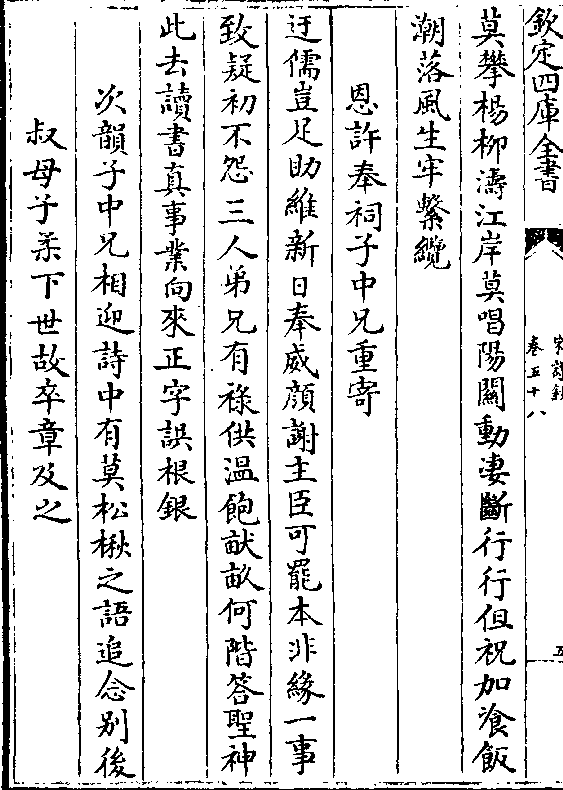 欽定四庫全書
宋詩鈔
卷五十八
五
莫攀楊柳濤江岸莫唱陽關動淒斷行行但祝加飡飯
潮落風生牢繫纜
恩許奉祠子中兄重寄
迂儒豈足助維新日奉威顔謝主臣可罷本非緣一事
致疑初不怨三人弟兄有祿供温飽畎畝何階答聖神
此去讀書真事業向來正字誤根銀
次韻子中兄相迎詩中有莫松楸之語追念别後
叔母子柔下世故卒章及之